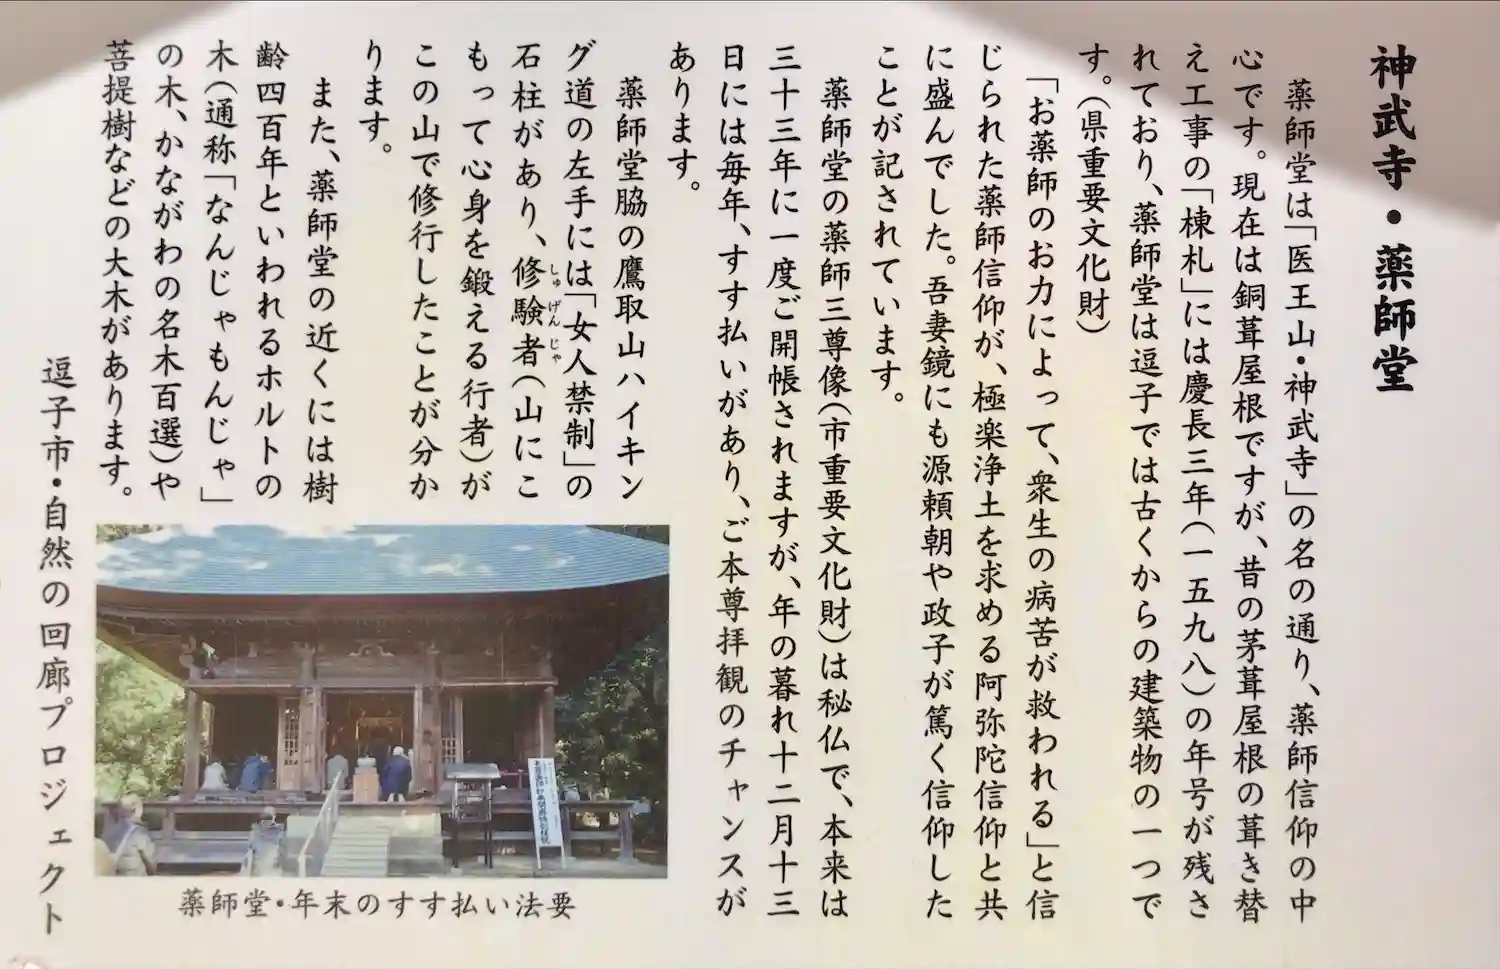 神武寺・薬師堂
薬師堂は「医王山・神武寺」の名の通り、薬師信仰の中
心です。現在は銅葺屋根ですが、昔の茅葺屋根の葺き替
え工事の「棟札」には慶長三年(一五九八)の年号が残さ
れており、薬師堂は逗子では古くからの建築物の一つで
す。(県重要文化財)
「お薬師のお力によって、衆生の病苦が救われる」と信
じられた薬師信仰が、極楽浄土を求める阿弥陀信仰と共
に盛んでした。吾妻鏡にも源頼朝や政子が篤く信仰した
ことが記されています。
薬師堂の薬師三尊像(市重要文化財)は秘仏で、本来は
三十三年に一度ご開帳されますが、年の暮れ十二月十三
日には毎年、すす払いがあり、ご本尊拝観のチャンスが
あります。
薬師堂脇の鷹取山ハイキン
グ道の左手には「女人禁制」の
石柱があり、修験者(山にこ
しゅげんじゃ
もって心身を鍛える行者)が
この山で修行したことが分か
ります。
また、薬師堂の近くには樹
齢四百年といわれるホルトの
木(通称「なんじゃもんじゃ」
の木、かながわの名木百選)や
菩提樹などの大木があります。
逗子市・自然の回廊プロジェクト
薬師堂・年末のすす払い法要